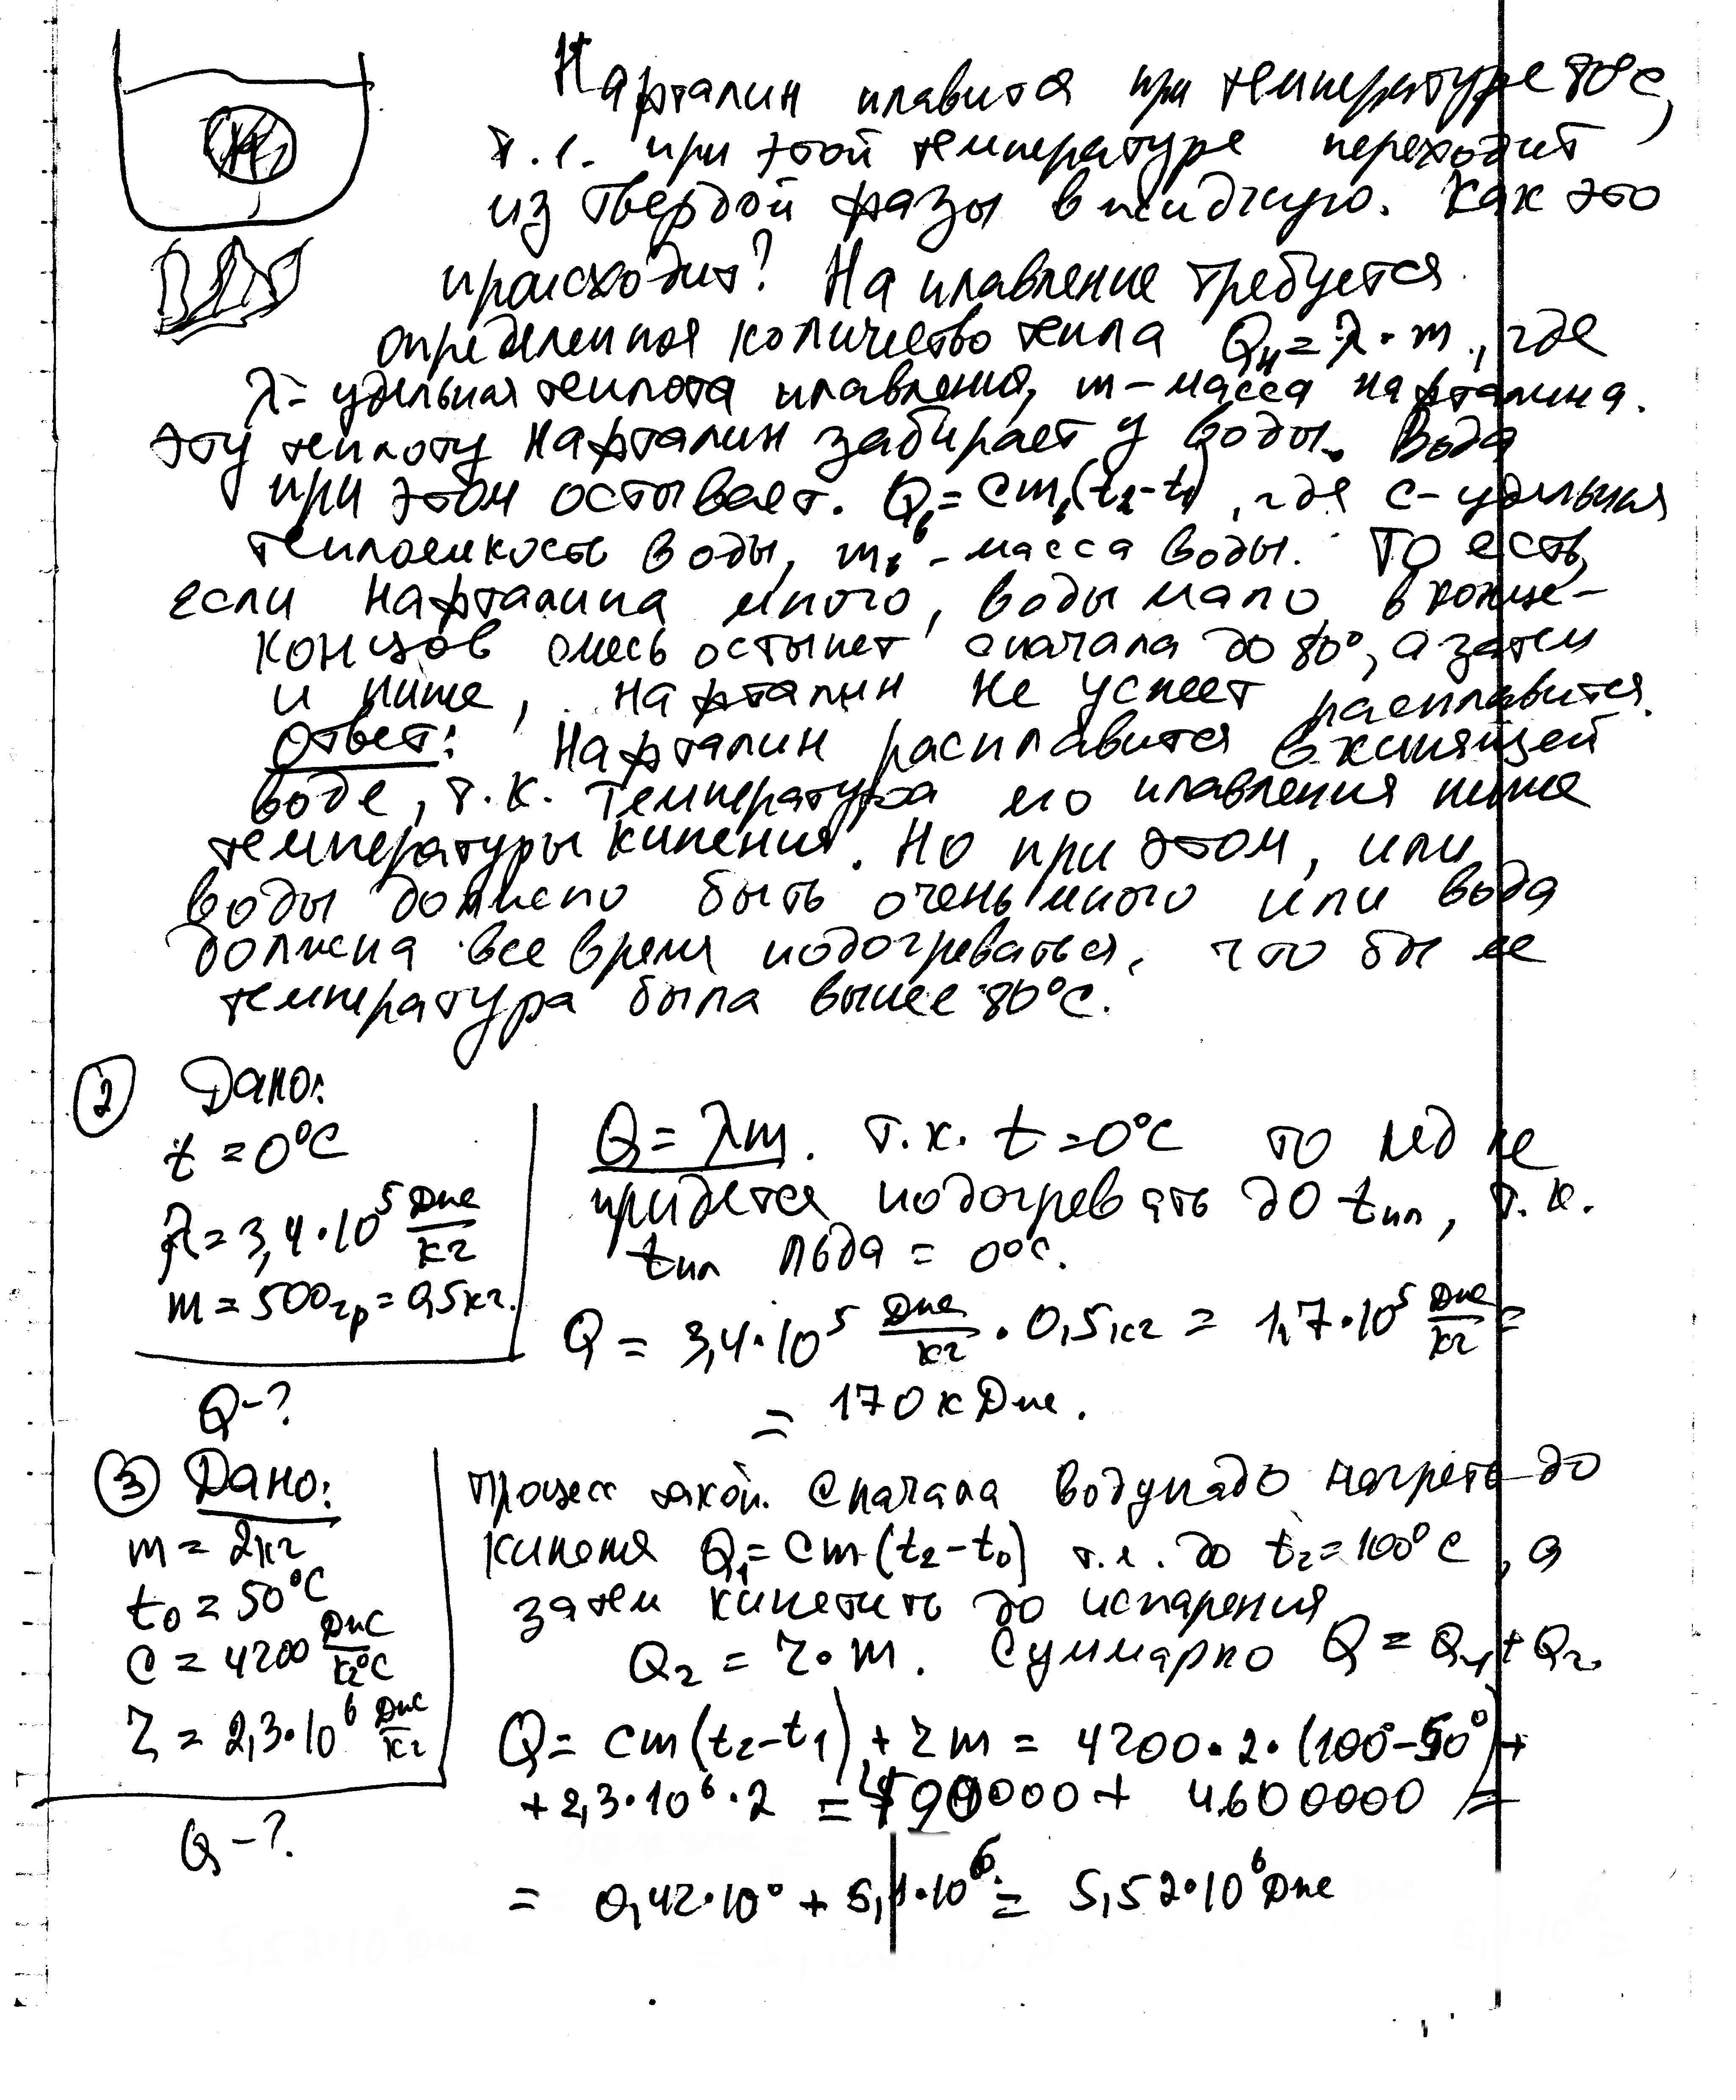 Нафталин плавится при температуре 80°C,
т.е. при этой температуре переходит
из твердой фазы в жидкую. Как это
происходит? На плавление требуется
определенная количество тепла Qн = λ·m, где
λ - удельная теплота плавления, m - масса нафталина.
Эту теплоту нафталин забирает у воды. Вода
при этом остывает. Qв = cmв(t₂-t₁), где c - удельная
теплоемкость воды, mв - масса воды. То есть,
если нафталина много, воды мало в конце-
концов смесь остынет сначала до 80°, а затем
и ниже, нафталин не успеет расплавится.
Ответ: Нафталин расплавится в кипящей
воде, т.к. температура его плавления ниже
температуры кипения. Но при этом, или
воды должно быть очень много или вода
должна все время подогреваться, что бы ее
температура была выше 80°C.
② Дано:
t = 0°C
λ = 3,4·10⁵ Дж/кг
m = 500гр = 0,5кг.
Q-?
Q = λm. т.к. t = 0°C то лед не
придется подогревать до tпл, т.к.
tпл льда = 0°C.
Q = 3,4·10⁵ Дж/кг · 0,5кг = 1,7·10⁵ Дж/кг =
= 170 кДж.
③ Дано:
m = 2кг
t₀ = 50°C
c = 4200 Дж/кг°C
r = 2,3·10⁶ Дж/кг
Q-?
Процесс такой. Сначала воду надо нагреть до
кипения Q₁ = cm(t₂-t₀) т.е. до t₂ = 100°C, а
затем кипетить до испарения
Q₂ = r·m. Суммарно Q = Q₁ + Q₂
Q = cm(t₂-t₁) + rm = 4200·2·(100°-50°) +
+ 2,3·10⁶·2 = + 4600000 =
= 0,42·10⁶ + 5,1·10⁶ = 5,52·10⁶ Дж